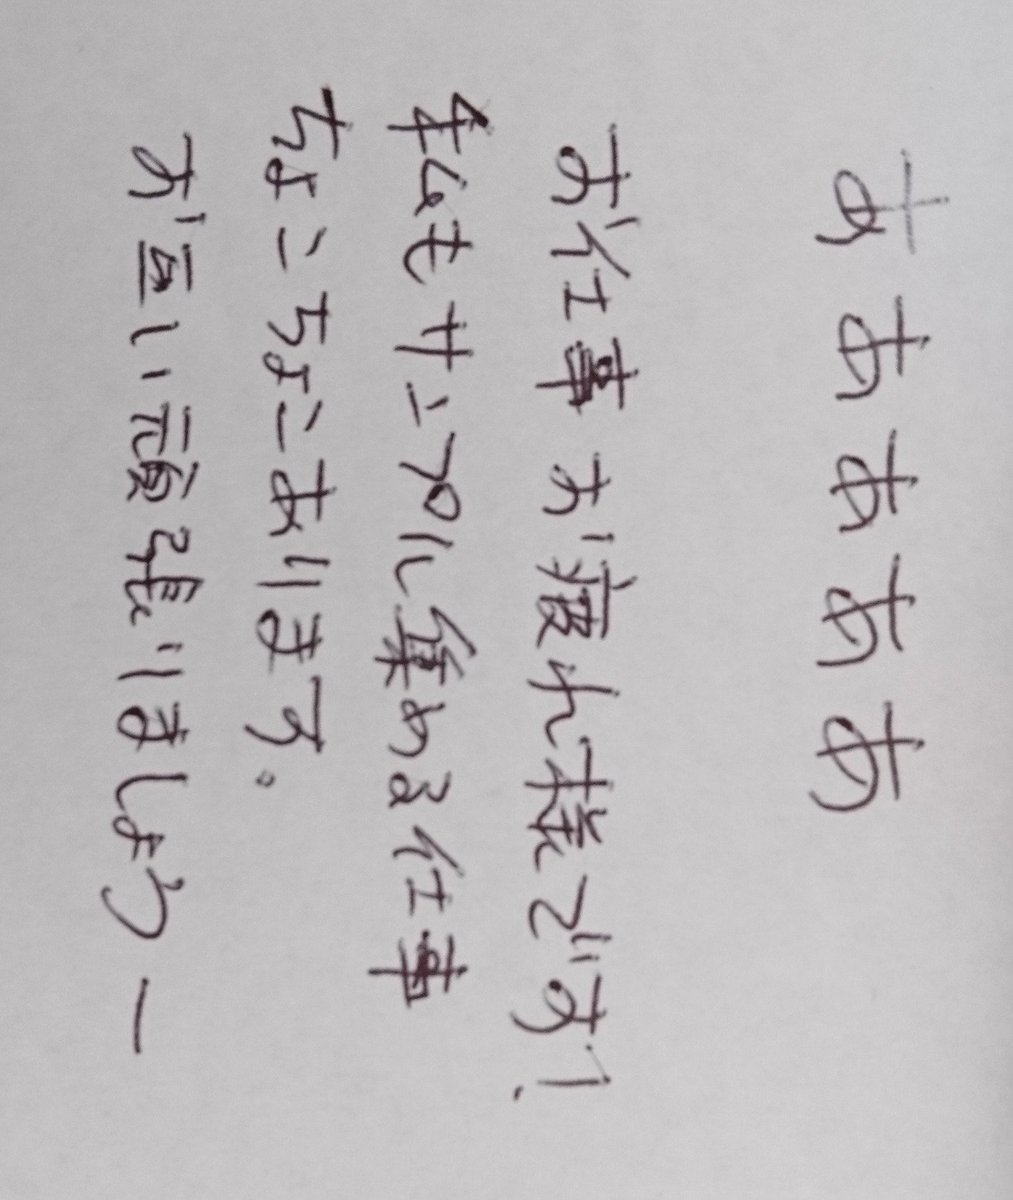 あああああ
お仕事お疲れ様です!
私もサンプル集める仕事
ちょこちょこあります。
お互い頑張りましょうー